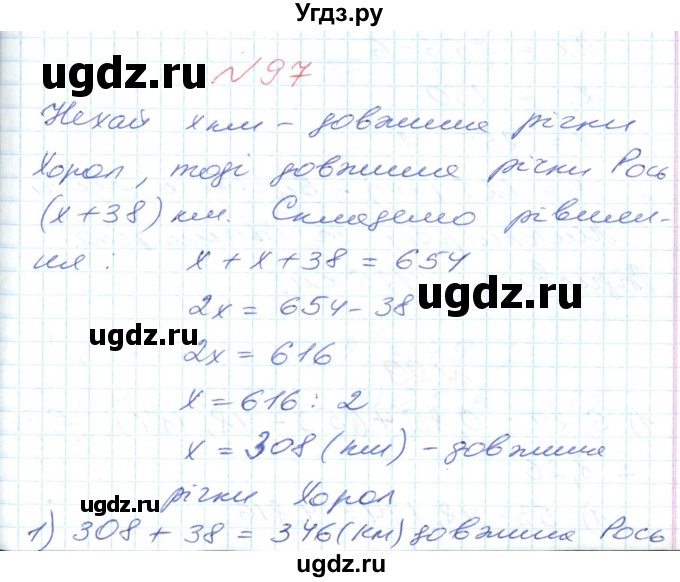 Угдз.ру
ugdz.ru № 97
Нехай x км – довжина річки
Хорол, тоді довжина річки Рось
(x + 38) км. Складемо рівнян-
ня : x + x + 38 = 654
ugdz.ru
2x = 654 – 38
ugdz.ru
2x = 616
x = 616 : 2
x = 308 (км) – довжина
ugdz.ru
річки Хорол
1) 308 + 38 = 346 (км) довжина Рось
ugdz.ru